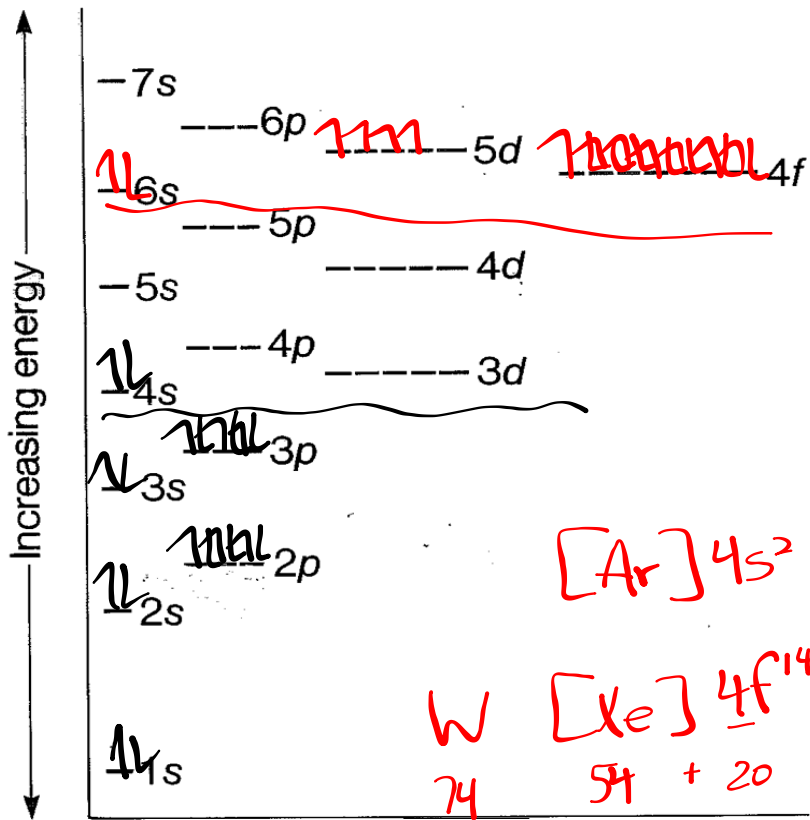 Increasing energy
7s
6p
5d
4f
6s
5p
4d
5s
4p
3d
4s
3p
3s
2p
[Ar] 4s²
2s
W [Xe] 4f¹⁴
1s
74 54 + 20